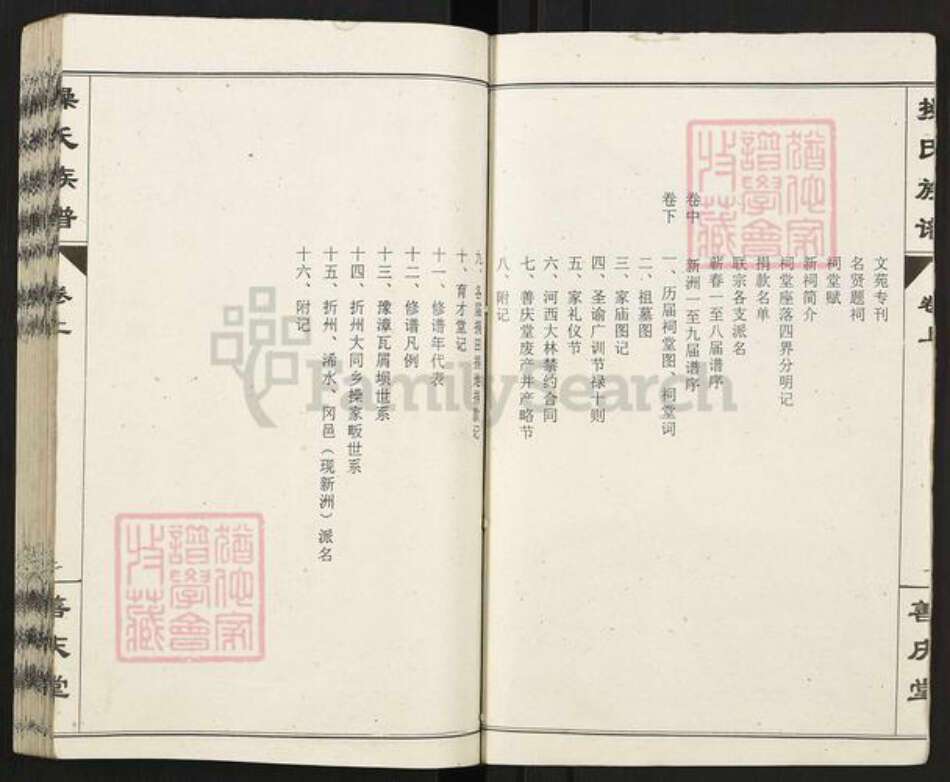 操氏族谱
卷上
善庆堂
文苑专刊
名贤题祠
祠堂赋
新祠简介
祠堂座落四界分明记
捐款名单
联宗各支派名
蕲春一至八届谱序
卷中
新洲一至九届谱序
卷下
一、历届祠堂图、祠堂词
二、祖墓图
三、家庙图记
四、圣谕广训节禄十则
五、家礼仪节
六、河西大林禁约合同
七、善庆堂废产并产略节
八、附记
九、各届
十、育才堂记
十一、修谱年代表
十二、修谱凡例
十三、豫漳瓦屑坝世系
十四、折州大同乡操家畈世系
十五、折州、浠水、冈邑（现新洲）派名
十六、附记
操氏族谱
卷上
善庆堂
猶他家
譜學會
收藏
猶他家
譜學會
收藏
FamilySearch